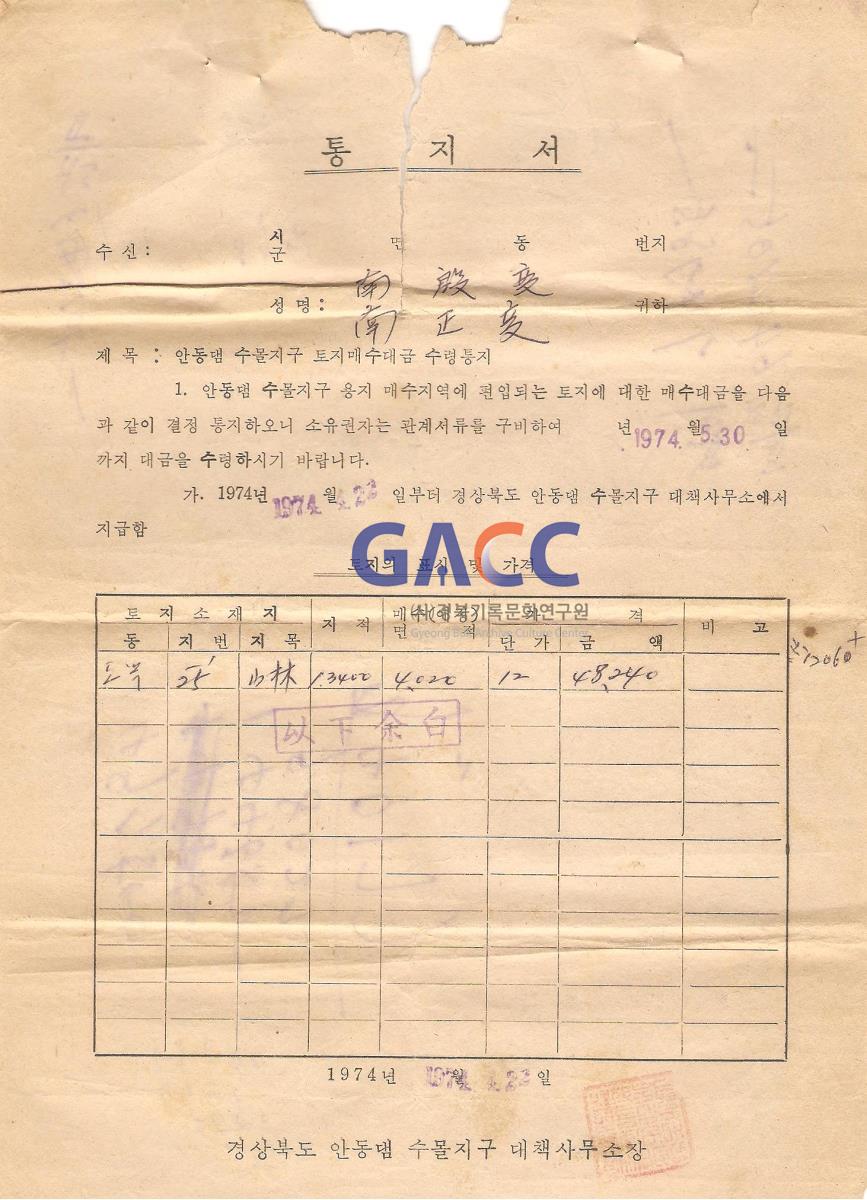 통 지 서
수 신 : 시 군 면 동 번지
성 명 : 南 殷 変 귀하
南 正 変
제 목 : 안동댐 수몰지구 토지매수대금 수령통지
1. 안동댐 수몰지구 용지 매수지역에 편입되는 토지에 대한 매수대금을 다음
과 같이 결정 통지하오니 소유권자는 관계서류를 구비하여 년 1974. 월 5.30 일
까지 대금을 수령하시기 바랍니다.
가. 1974년 1974 월 4.22 일부터 경상북도 안동댐 수몰지구 대책사무소에서
지급함
GACC
토지의 표시 및 가격
(사)경북기록문화연구원
Gyeong Buk Archive Culture Center
토 지 소 재 지 지 적 매수(예정) 면 적 가 격 비 고
동 지 번 지 목 단 가 금 액
25 山林 1.3400 4,020 12 48,240
12060
以下余白
1974년 1974 월 4.22 일
경상북도 안동댐 수몰지구 대책사무소장